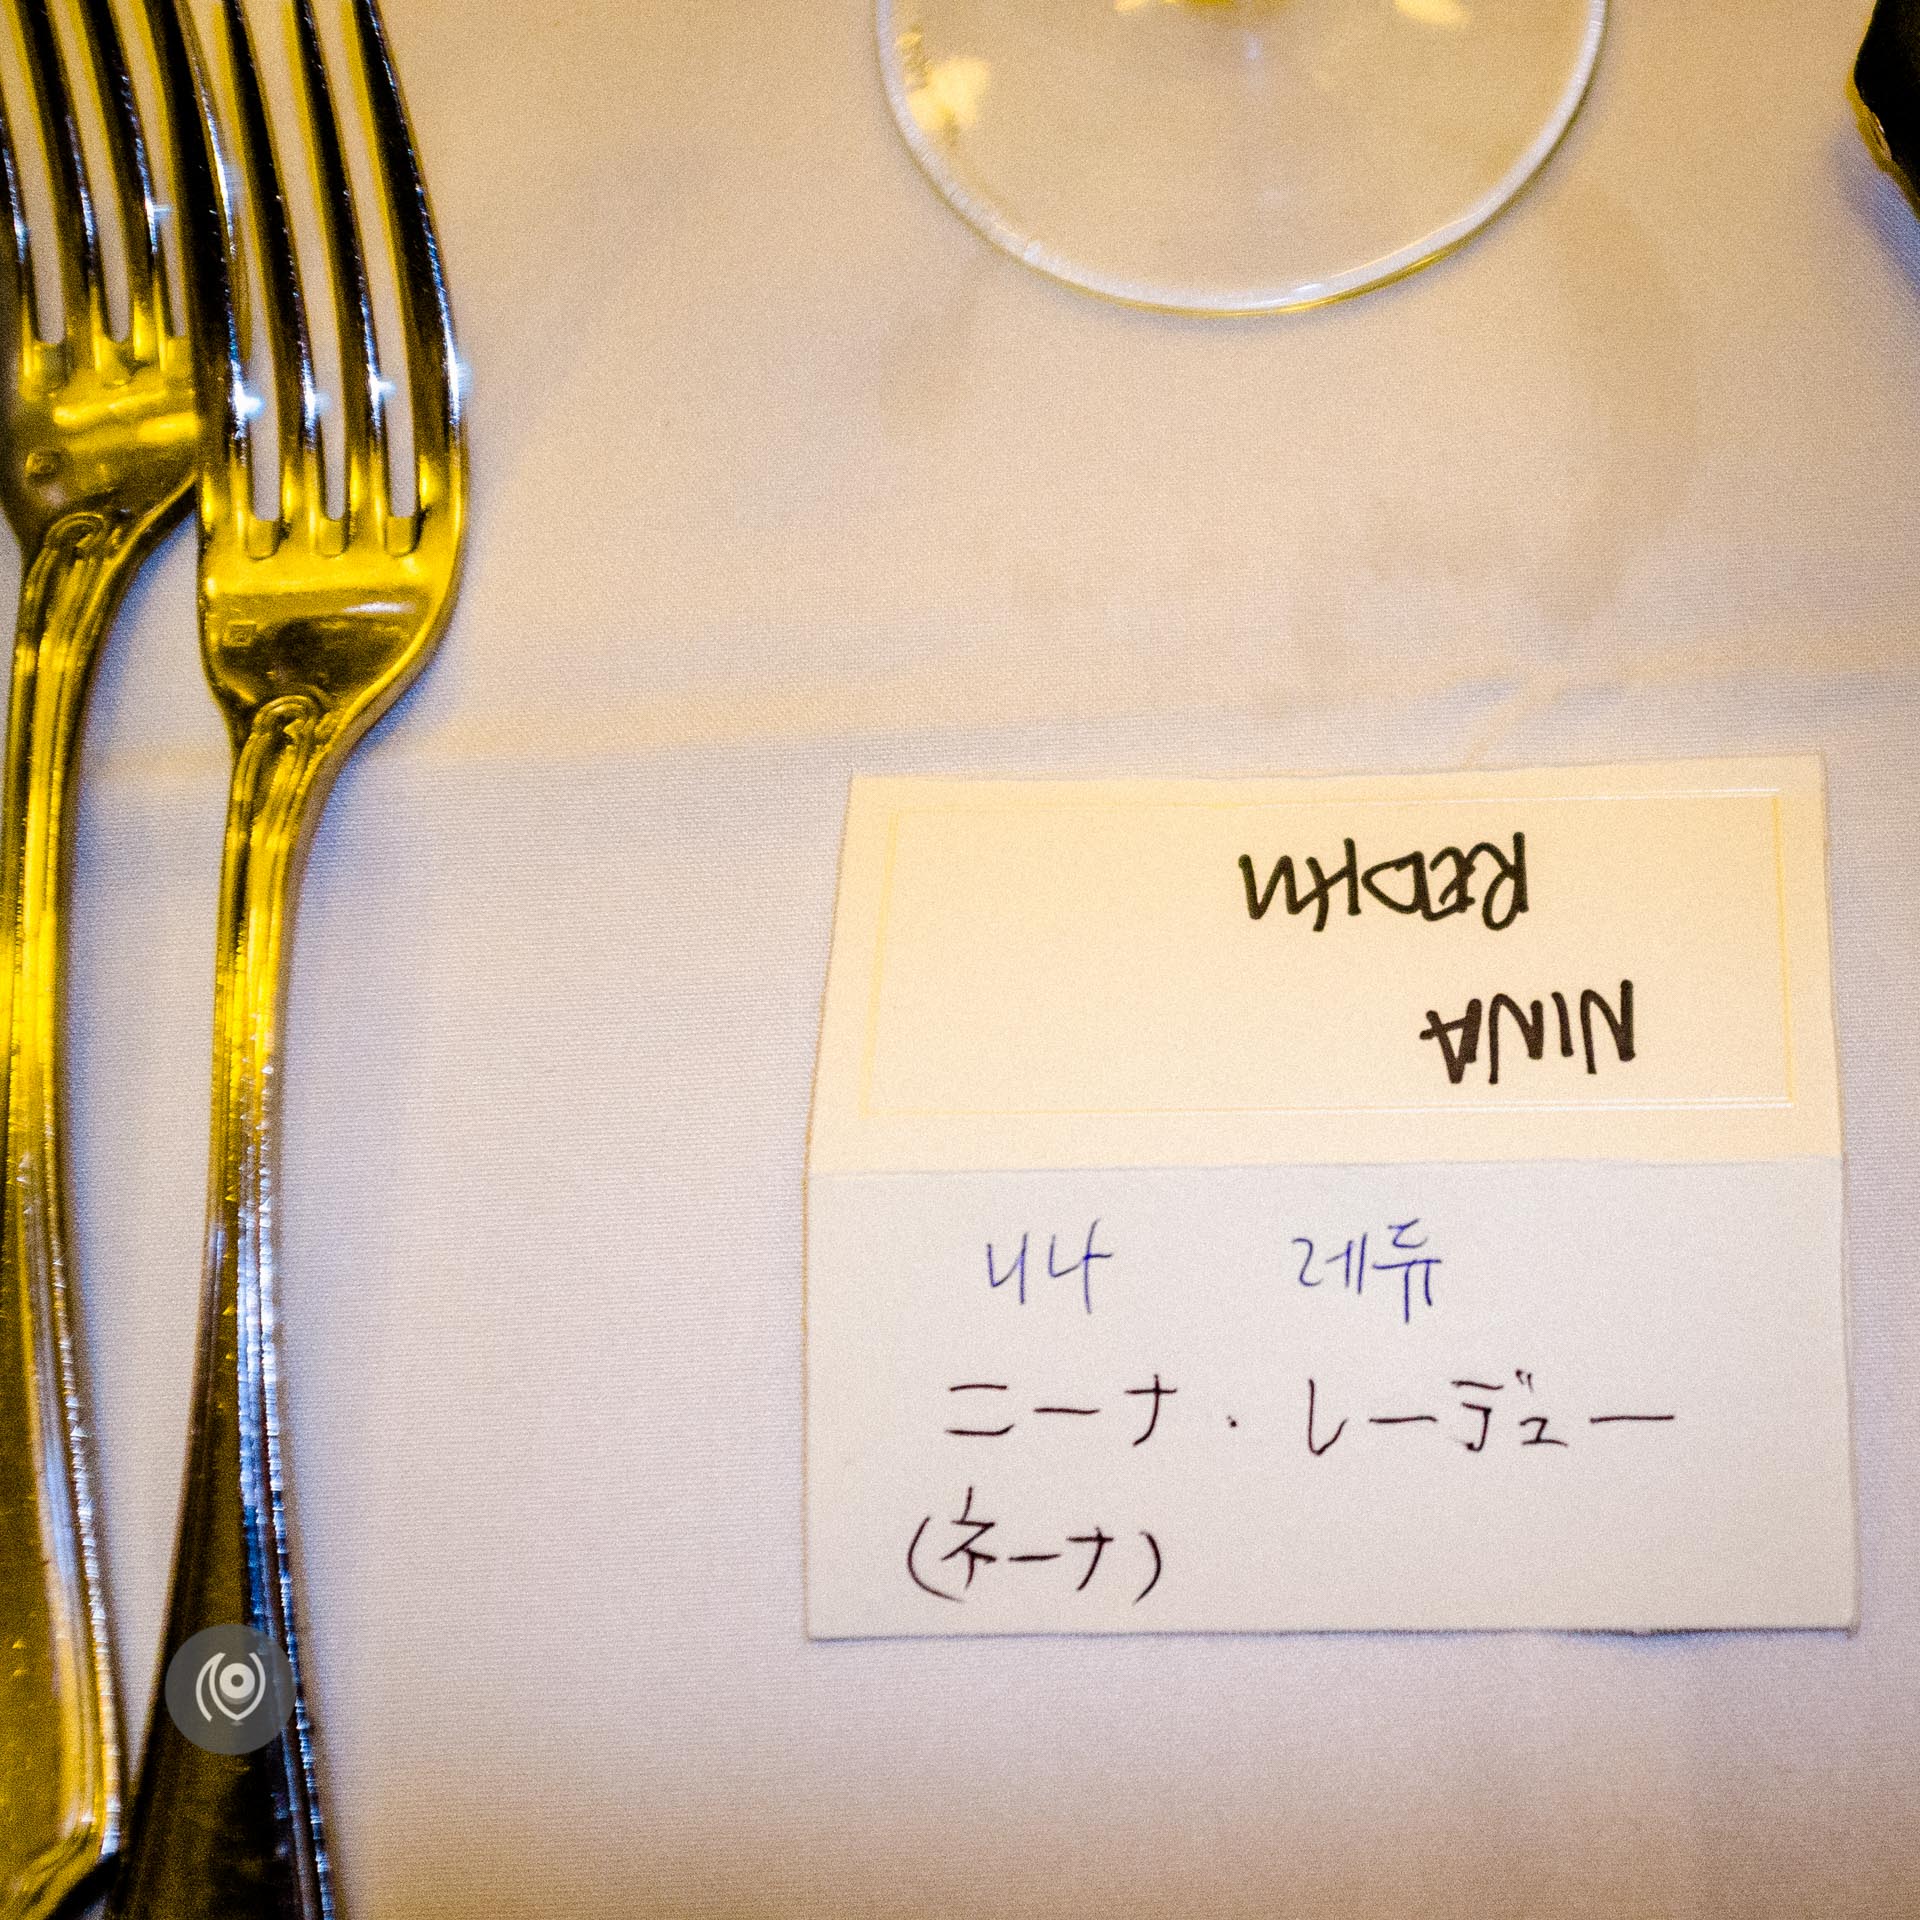 NINA
니나 레듀
ニーナ・レーデュー
(ネーナ)